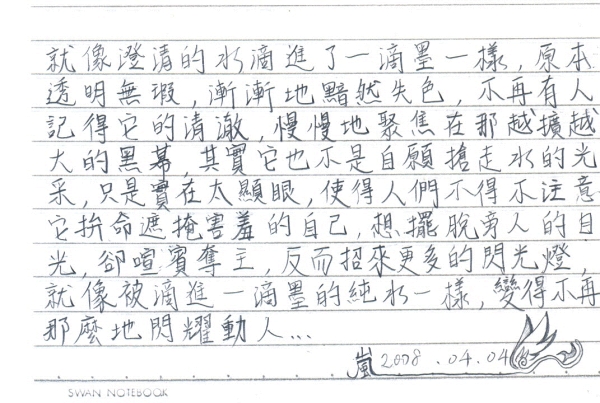 就像澄清的水滴進了一滴墨一樣，原本
透明無瑕，漸漸地黯然失色，不再有人
記得它的清澈，慢慢地聚焦在那越擴越
大的黑幕，其實它也不是自願搶走水的光
采，只是實在太顯眼，使得人們不得不注意
它拚命遮掩害羞的自己，想擺脫旁人的目
光，卻喧賓奪主，反而招來更多的閃光燈，
就像被滴進一滴墨的純水一樣，變得不再
那麼地閃耀動人...
嵐 2008.04.04
SWAN NOTEBOOK